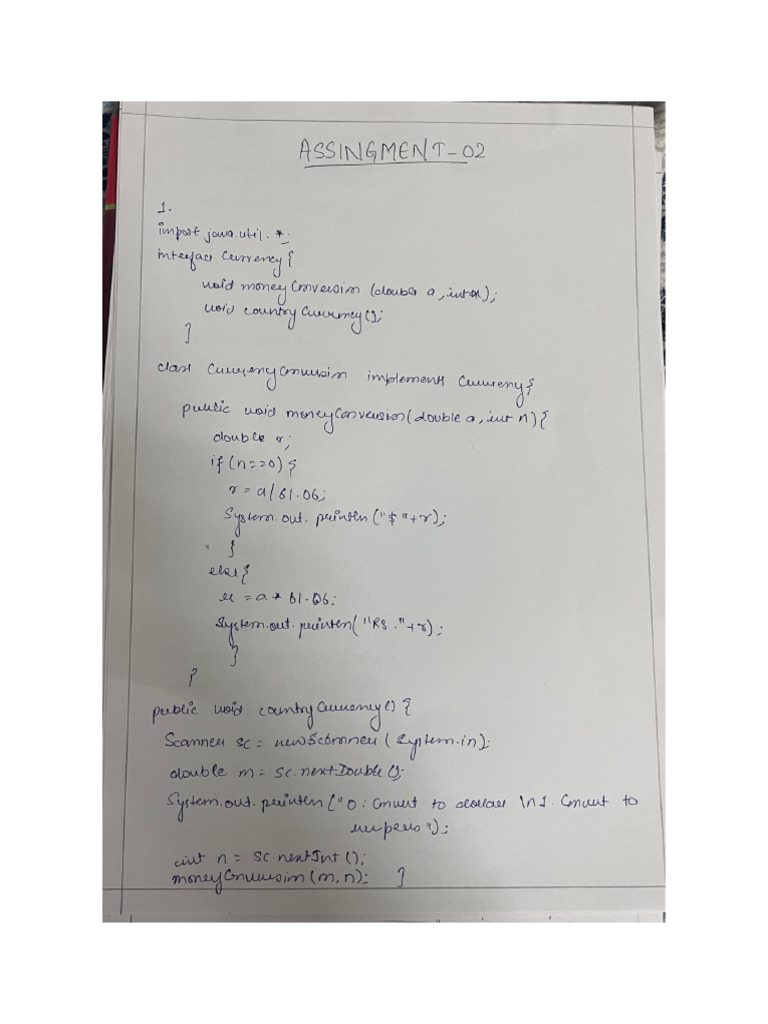 ASSINGMENT-02
1.
import java.util.*;
interface Currency{
void moneyConversion (double a, int n);
void countryCurrency();
}
class CurrencyConversion implements Currency{
public void moneyConversion(double a, int n){
double r;
if(n==0){
r=a/61.06;
System.out.println("$"+r);
}
else{
r=a*61.06;
System.out.println("RS."+r);
}
}
public void countryCurrency(){
Scanner sc = new Scanner(System.in);
double m= sc.nextDouble();
System.out.println("0: Convert to dollar \n1. Convert to
rupees");
int n = sc.nextInt();
moneyConversion(m,n); }